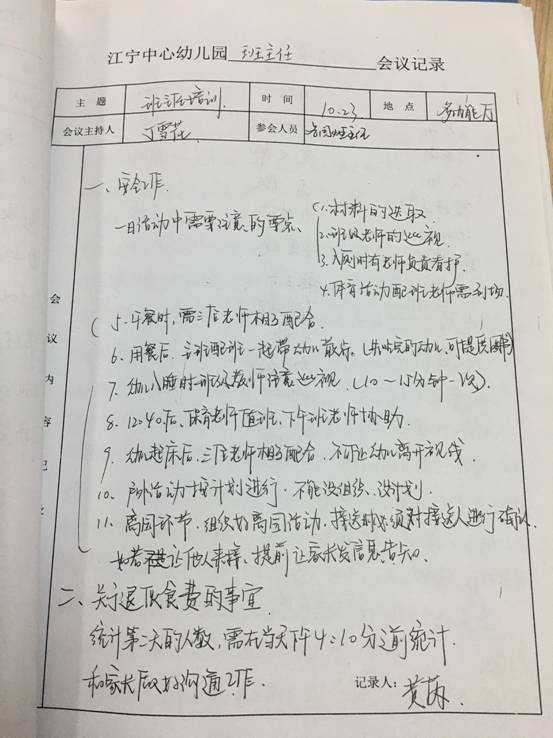 江宁中心幼儿园 班主任 会议记录
主题 班主任培训 时间 10.23 地点 多功能厅
会议主持人 丁雪花 参会人员 各园班主任
会议内容记录
一、安全工作
一日活动中需要注意的要点、
1.材料的选取
2.班级老师的巡视
3.入厕时有老师负责看护
4.体育活动配班老师需到场
5.午餐时,需三位老师相互配合
6.用餐后,主班配班一起带幼儿散步。(先吃完的幼儿,可提供图书)
7.幼儿入睡时班级教师注意巡视,(10~15分钟一次)
8.12:40后,保育老师值班,下午班老师协助.
9.幼儿起床后,三位老师相互配合,不可让幼儿离开视线
10.户外活动按计划进行.不能没组织、没计划.
11.离园环节,组织好离园活动,接送时必须对接送人进行确认.
如若是让他人来接,提前让家长发信息告知.
二、关于退伙食费的事宜
统计第二天的人数,需在当天下午4:10分之前统计.
和家长做好沟通工作.
记录人:黄